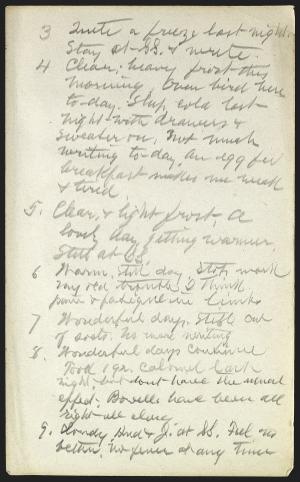 3 Quite a freeze last night.
Stay at SS. & write.
4 Clear; heavy frost this
morning. Oven bird here
to-day. Slept cold last
night with drawers &
sweater on. Not much
writing to-day, an egg for
breakfast makes me weak
& tired.
5. Clear, & light frost, A
lovely day, getting warmer.
Still at SS.
6 Warm, still day,
my old trouble I think,
pain & fatigue in limbs
7 Wonderful days. Still out
of sorts. No more writing
8. Wonderful days continue
Took 1 gr. calomel last
night, but dont have the usual
effect. Bowels have been all
right all along
9. Cloudy, at SS. Feel no
better, no fever at any time